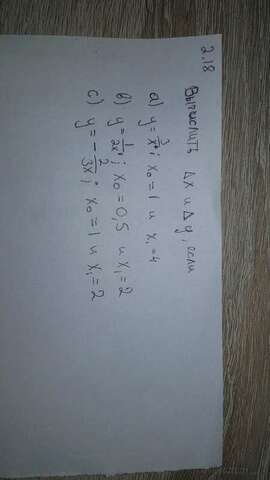 2.18
Вычислить Δx и Δy, если
a) y = 3/x; x₀ = 1 и x₁ = 4
b) y = 1/2x; x₀ = 0,5 и x₁ = 2
c) y = -2/3x; x₀ = 1 и x₁ = 2